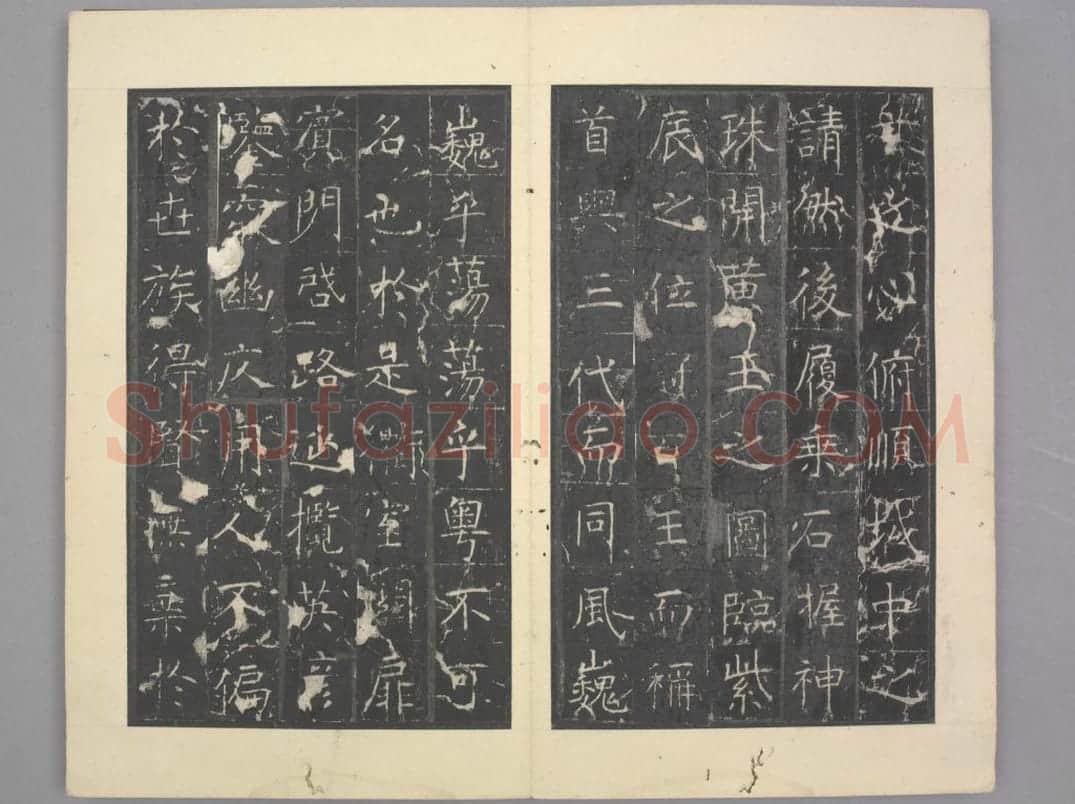 俯順域中之
請然後履乗石握神
珠開黃玉之圖臨紫
宸之位百王而稱
首與三代而同風巍
巍乎蕩蕩乎粵不可
名也於是室闢扉
賓門啓路延攬英彥
鑒幽仄用人不偏
於世族得賢無棄於
Shufaziliao.COM